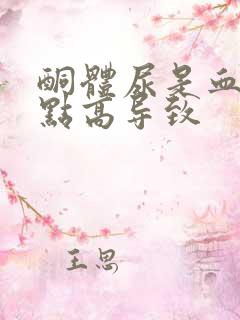 酮體尿是血
點高导致
王思